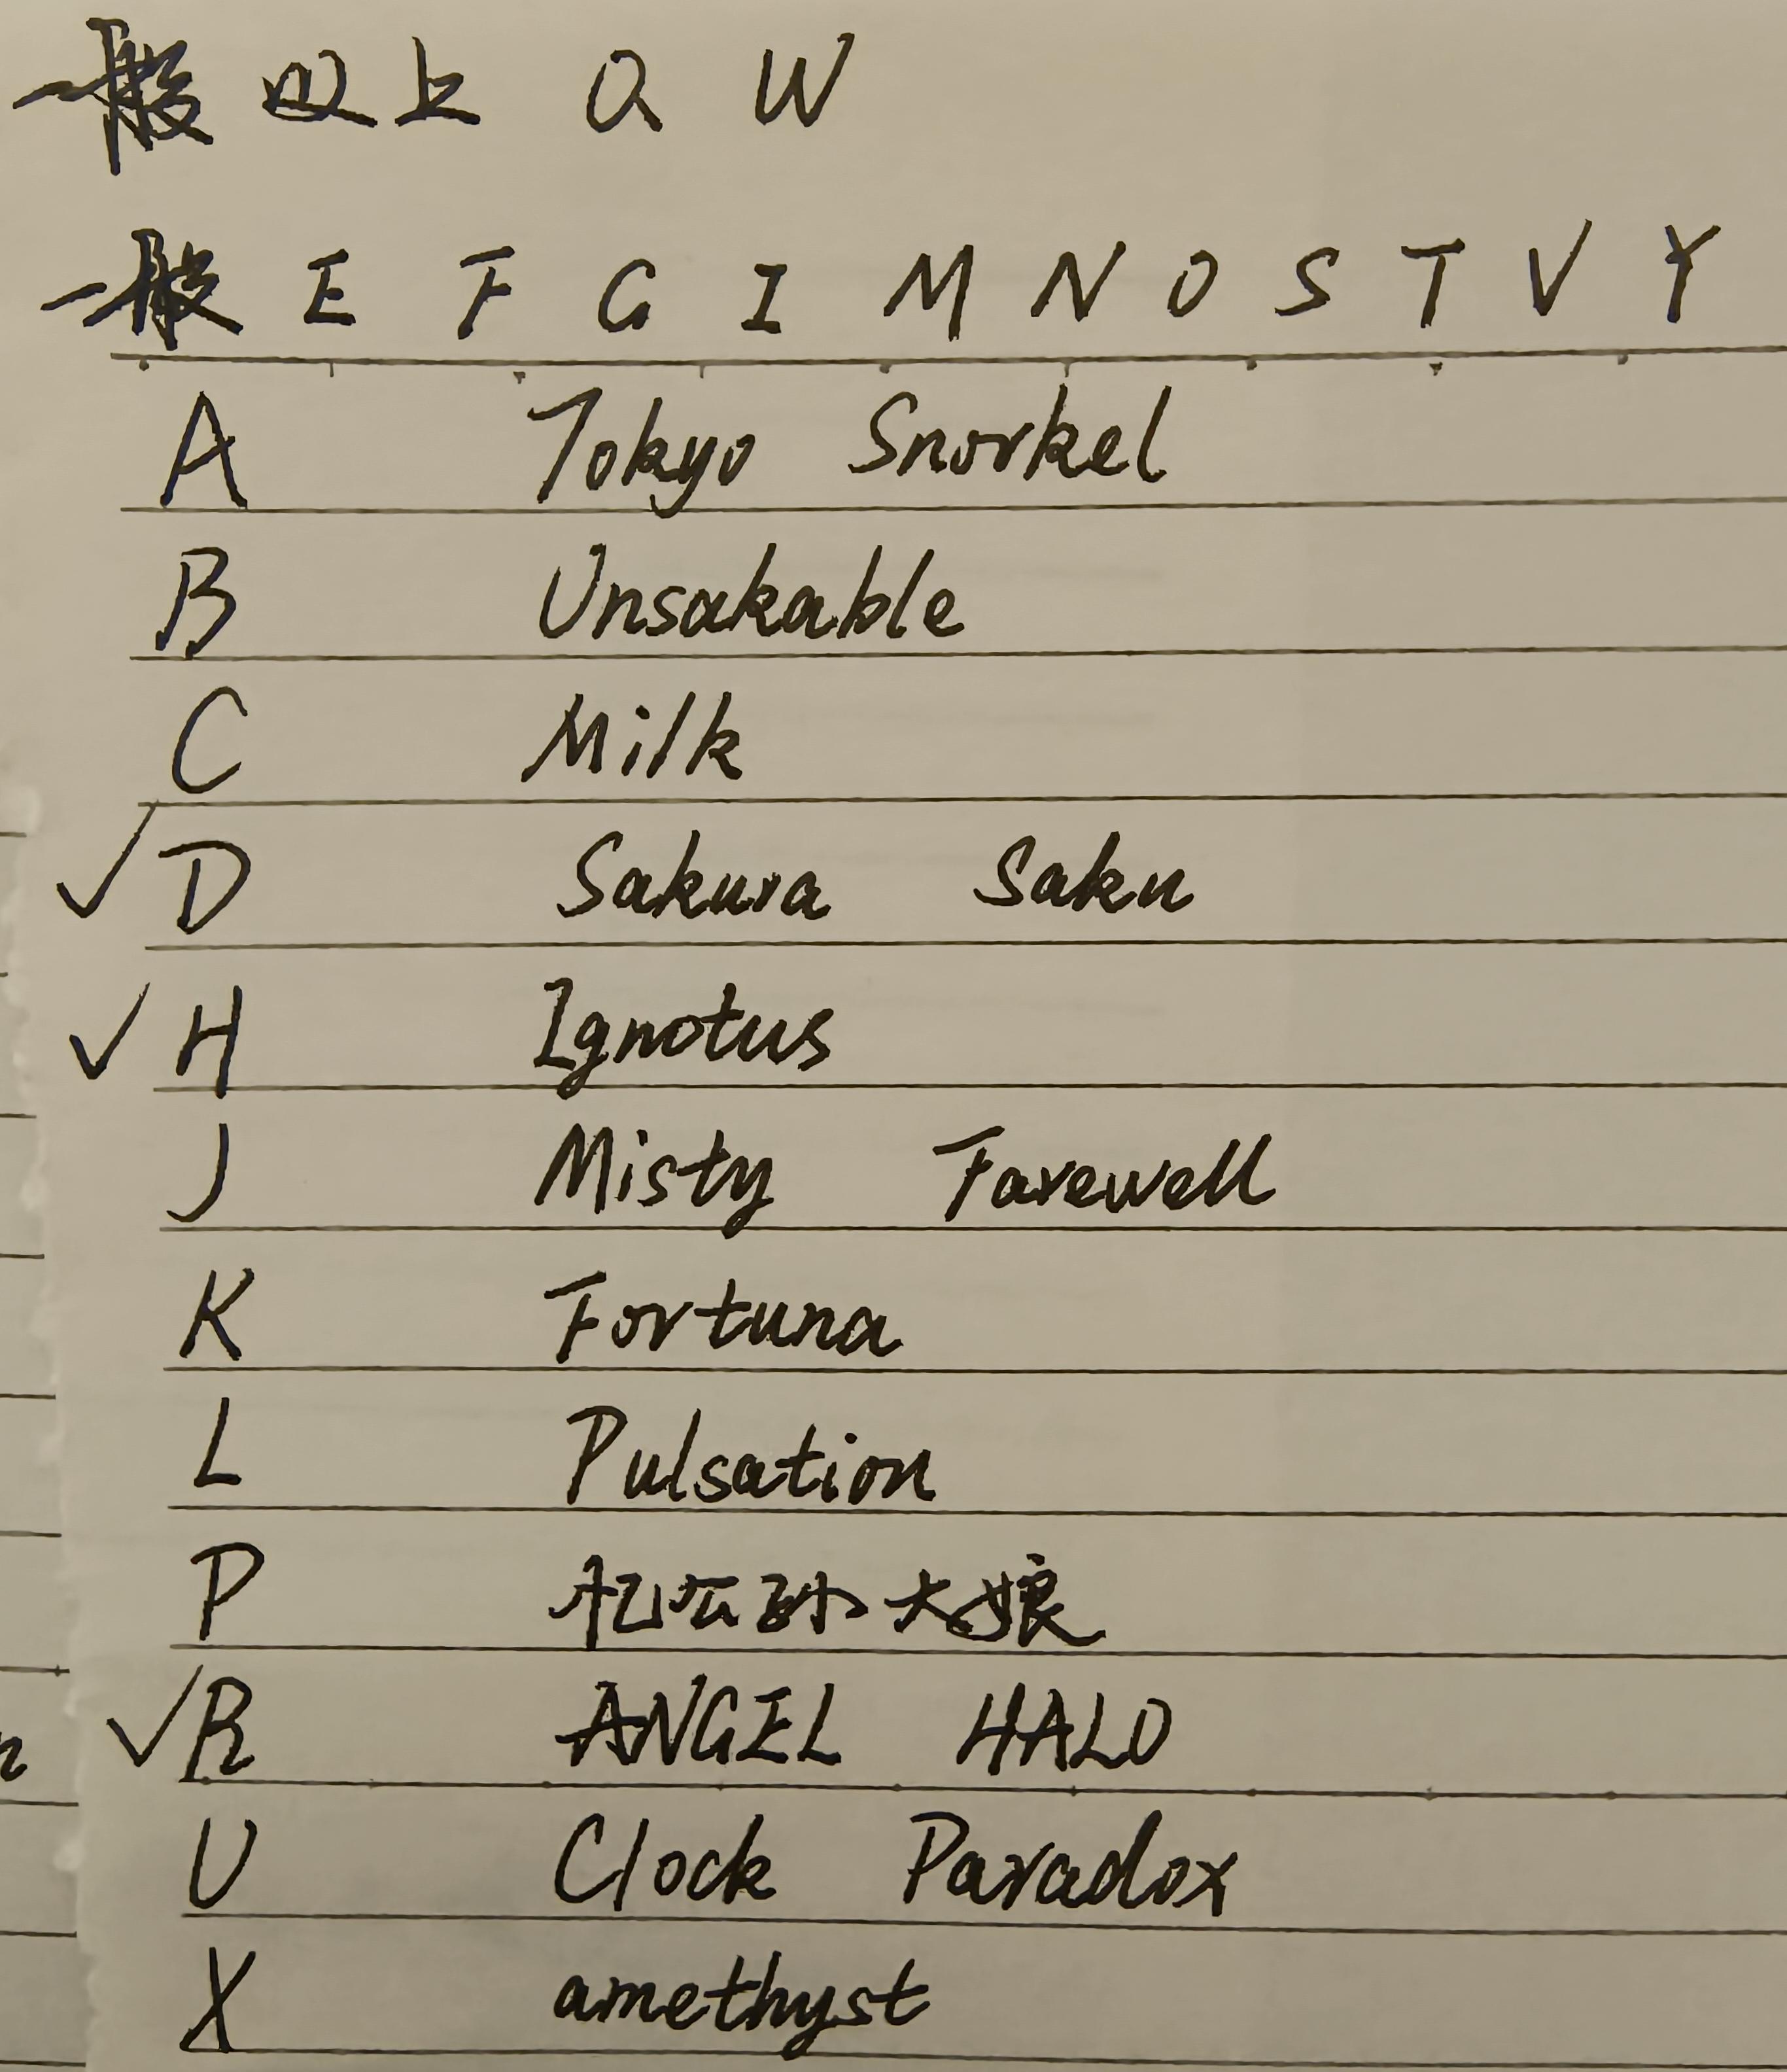 一般以上 Q W
一般 E F G I M N O S T V Y
A Tokyo Snorkel
B Unsakable
C Milk
✓ D Sakura Saku
✓ H Ignotus
J Misty Farewell
K Fortuna
L Pulsation
P 大娘
✓ R ANGEL HALO
U Clock Paradox
X amethyst